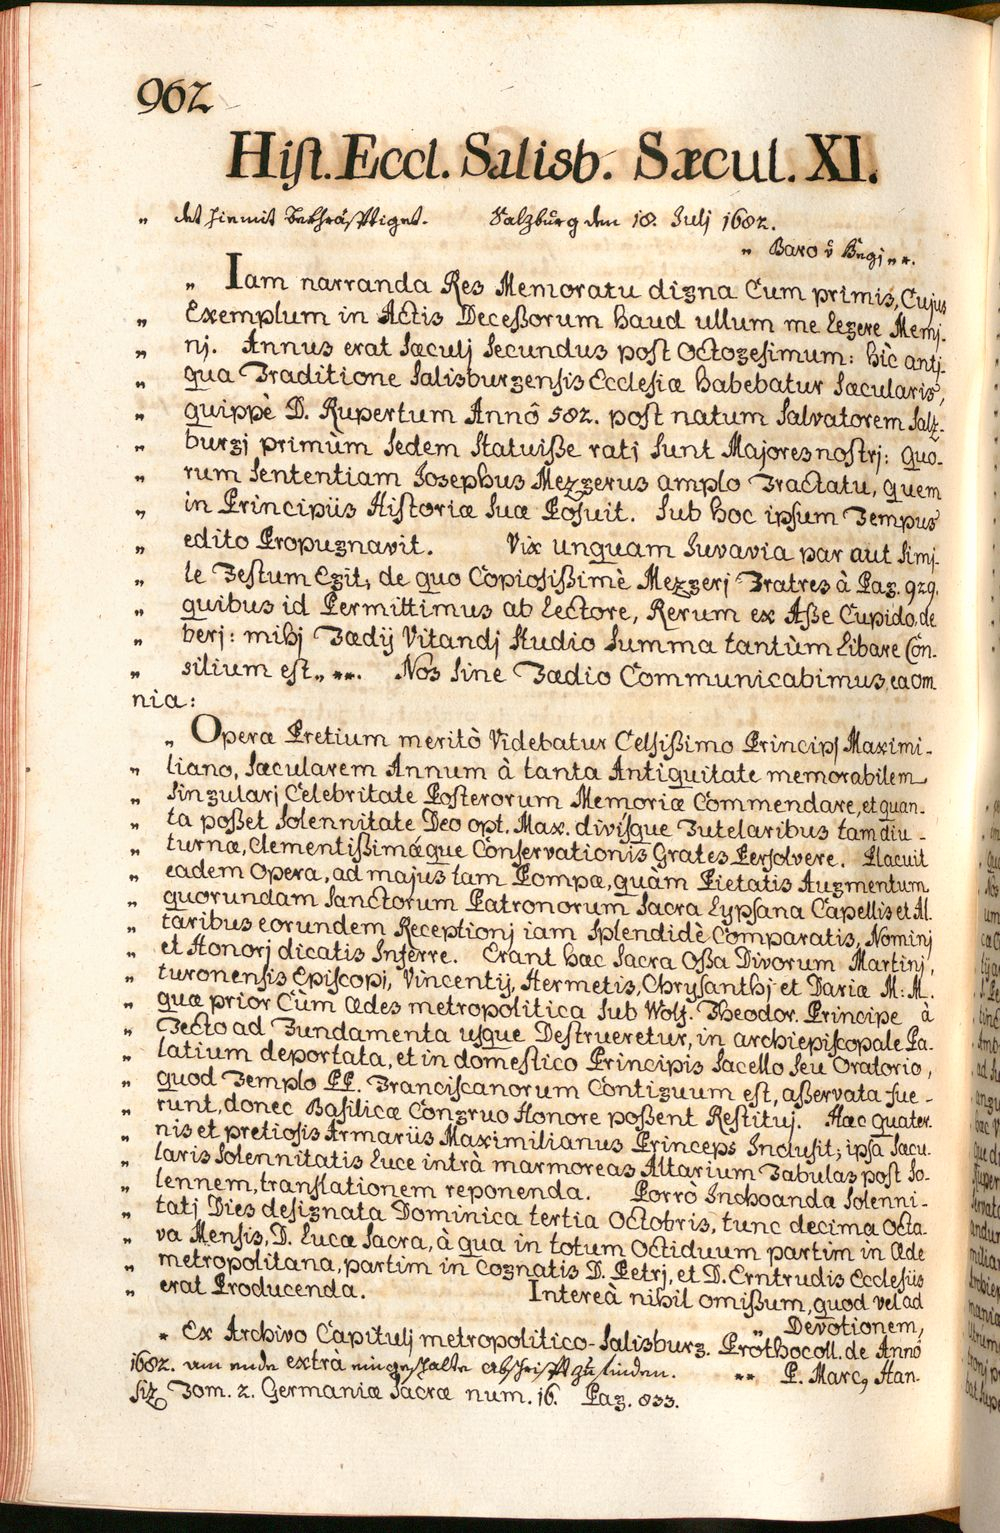 962
Hist. Eccl. Salisb. Sæcul. XI.
„ det hiemit bekhräfftiget. Salzburg den 18. Julj 1682.
„ Baro v
„ Iam narranda Res Memoratu digna Cum primis, Cujus
„ Exemplum in Actis Deceßorum haud ullum me legere Memj-
„ nj. Annus erat sæculj secundus post octogesimum: hìc antj-
„ qua Traditione Salisburgensis Ecclesiæ habebatur sæcularis,
„ quippè D. Rupertum Annô 582. post natum Salvatorem Salz-
„ burgj primùm sedem statuiße ratj sunt Majores nostrj: quo-
„ rum sententiam Josephus Mezgerus amplo Tractatu, quem
„ in Principiis Historiæ suæ Posuit. Sub hoc ipsum Tempus
„ edito Propugnavit. Vix unquam Juvavia par aut simj-
„ le Festum Egit, de quo Copiosißimè Mezgerj Fratres à Pag. 929.
„ quibus id Permittimus ab Lectore, Rerum ex Aße Cupido, de
„ berj: mihj Tædij Vitandj studio summa tantùm Libare Con-
„ silium est„ **. Nos sine Tædio Communicabimus ea om
nia:
„ Operæ Pretium meritò Videbatur Celsißimo Principj Maximi-
„ liano, sæcularem Annum à tanta Antiquitate memorabilem
„ singularj Celebritate Posterorum Memoriæ Commendare, et quan-
„ ta poßet solennitate Deo opt. Max. divisque Tutelaribus tam diu-
„ turnæ, Clementißimæque Conservationis Grates Persolvere. Placuit
„ eadem Opera, ad majus tam Pompæ, quàm Pietatis Augmentum
„ quorundam Sanctorum Patronorum Sacra Lypsana Capellis et Al-
„ taribus eorundem Receptionj iam splendidè Comparatis, Nominj
„ et Honorj dicatis Inferre. Erant hæc Sacra Oßa Divorum Martinj,
„ turonensis Episcopi, Vincentij, Hermetis, Chrysanthj et Dariæ M: M.
„ quæ prior Cùm ædes metropolitica sub Wolf. Theodor. Principe à
„ Tecto ad Fundamenta usque Destrueretur, in archiepiscopale Pa-
„ latium deportata, et in domestico Principis Sacello seu Oratorio,
„ quod Templo PP. Franciscanorum Contiguum est, aßervata fue-
„ runt, donec Basilicæ Congruo Honore poßent Restituj. Hæc quater-
„ nis et pretiosis Armariis Maximilianus Princeps Inclusit, ipsa sæcu-
„ laris solennitatis Luce intrà marmoreas Altarium Tabulas post so-
„ lennem, translationem reponenda. Porrò Inchoanda solenni-
„ tatj Dies designata Dominica tertia Octobris, tunc decima octa-
„ va Mensis, D. Lucæ Sacra, à qua in totum Octiduum partim in æde
„ metropolitana, partim in Cognatis D. Petrj, et D. Erntrudis Ecclesiis
„ erat Producenda. Intereà nihil omißum, quod vel ad
„ Devotionem,
* Ex Archivo Capitulj metropolitico-Salisburg. Prothocoll. de Annô
1682. am ende extrà eingeschalte Abschrifft zu finden. ** P. Marc, Han-
siz Tom. 2. Germaniæ Sacræ num. 16. Pag. 833.